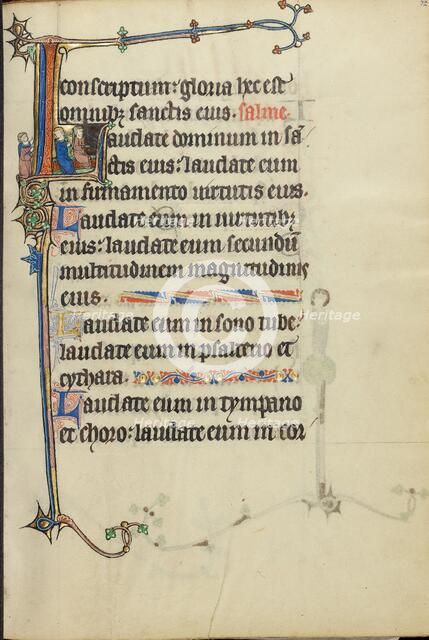 conscriptum: gloria hec est
omnibꝫ sanctis eius. salme.
Laudate dominum in sā
ctis eius: laudate eum
in firmamento uirtutis eius.
Laudate eum in uirtutibꝫ
eius: laudate eum secundū
multitudinem magnitudinis
eius.
Laudate eum in sono tube:
laudate eum in psalterio et
cythara.
Laudate eum in tympano
et choro: laudate eum in cor
Heritage Heritage
Heritage Heritage